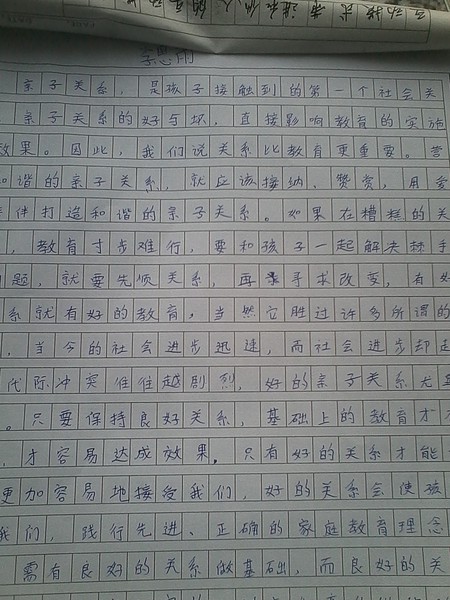 李思雨
亲子关系,是孩子接触到的第一个社会关
亲子关系的好与坏,直接影响教育的实施
效果。因此,我们说关系比教育更重要。营
和谐的亲子关系,就应该接纳、赞赏,用爱
伴打造和谐的亲子关系。如果在糟糕的关
,教育寸步难行,要和孩子一起解决棘手
题,就要先顺关系,再寻求改变,有好
系就有好的教育,当然它胜过许多所谓的
,当今的社会进步迅速,而社会进步却
代际冲突往往越剧烈,好的亲子关系尤
。只要保持良好关系,基础上的教育才
,才容易达成效果。只有好的关系才能
更加容易地接受我们,好的关系会使孩
我们,践行先进、正确的家庭教育理念
需有良好的关系做基础,而良好的关